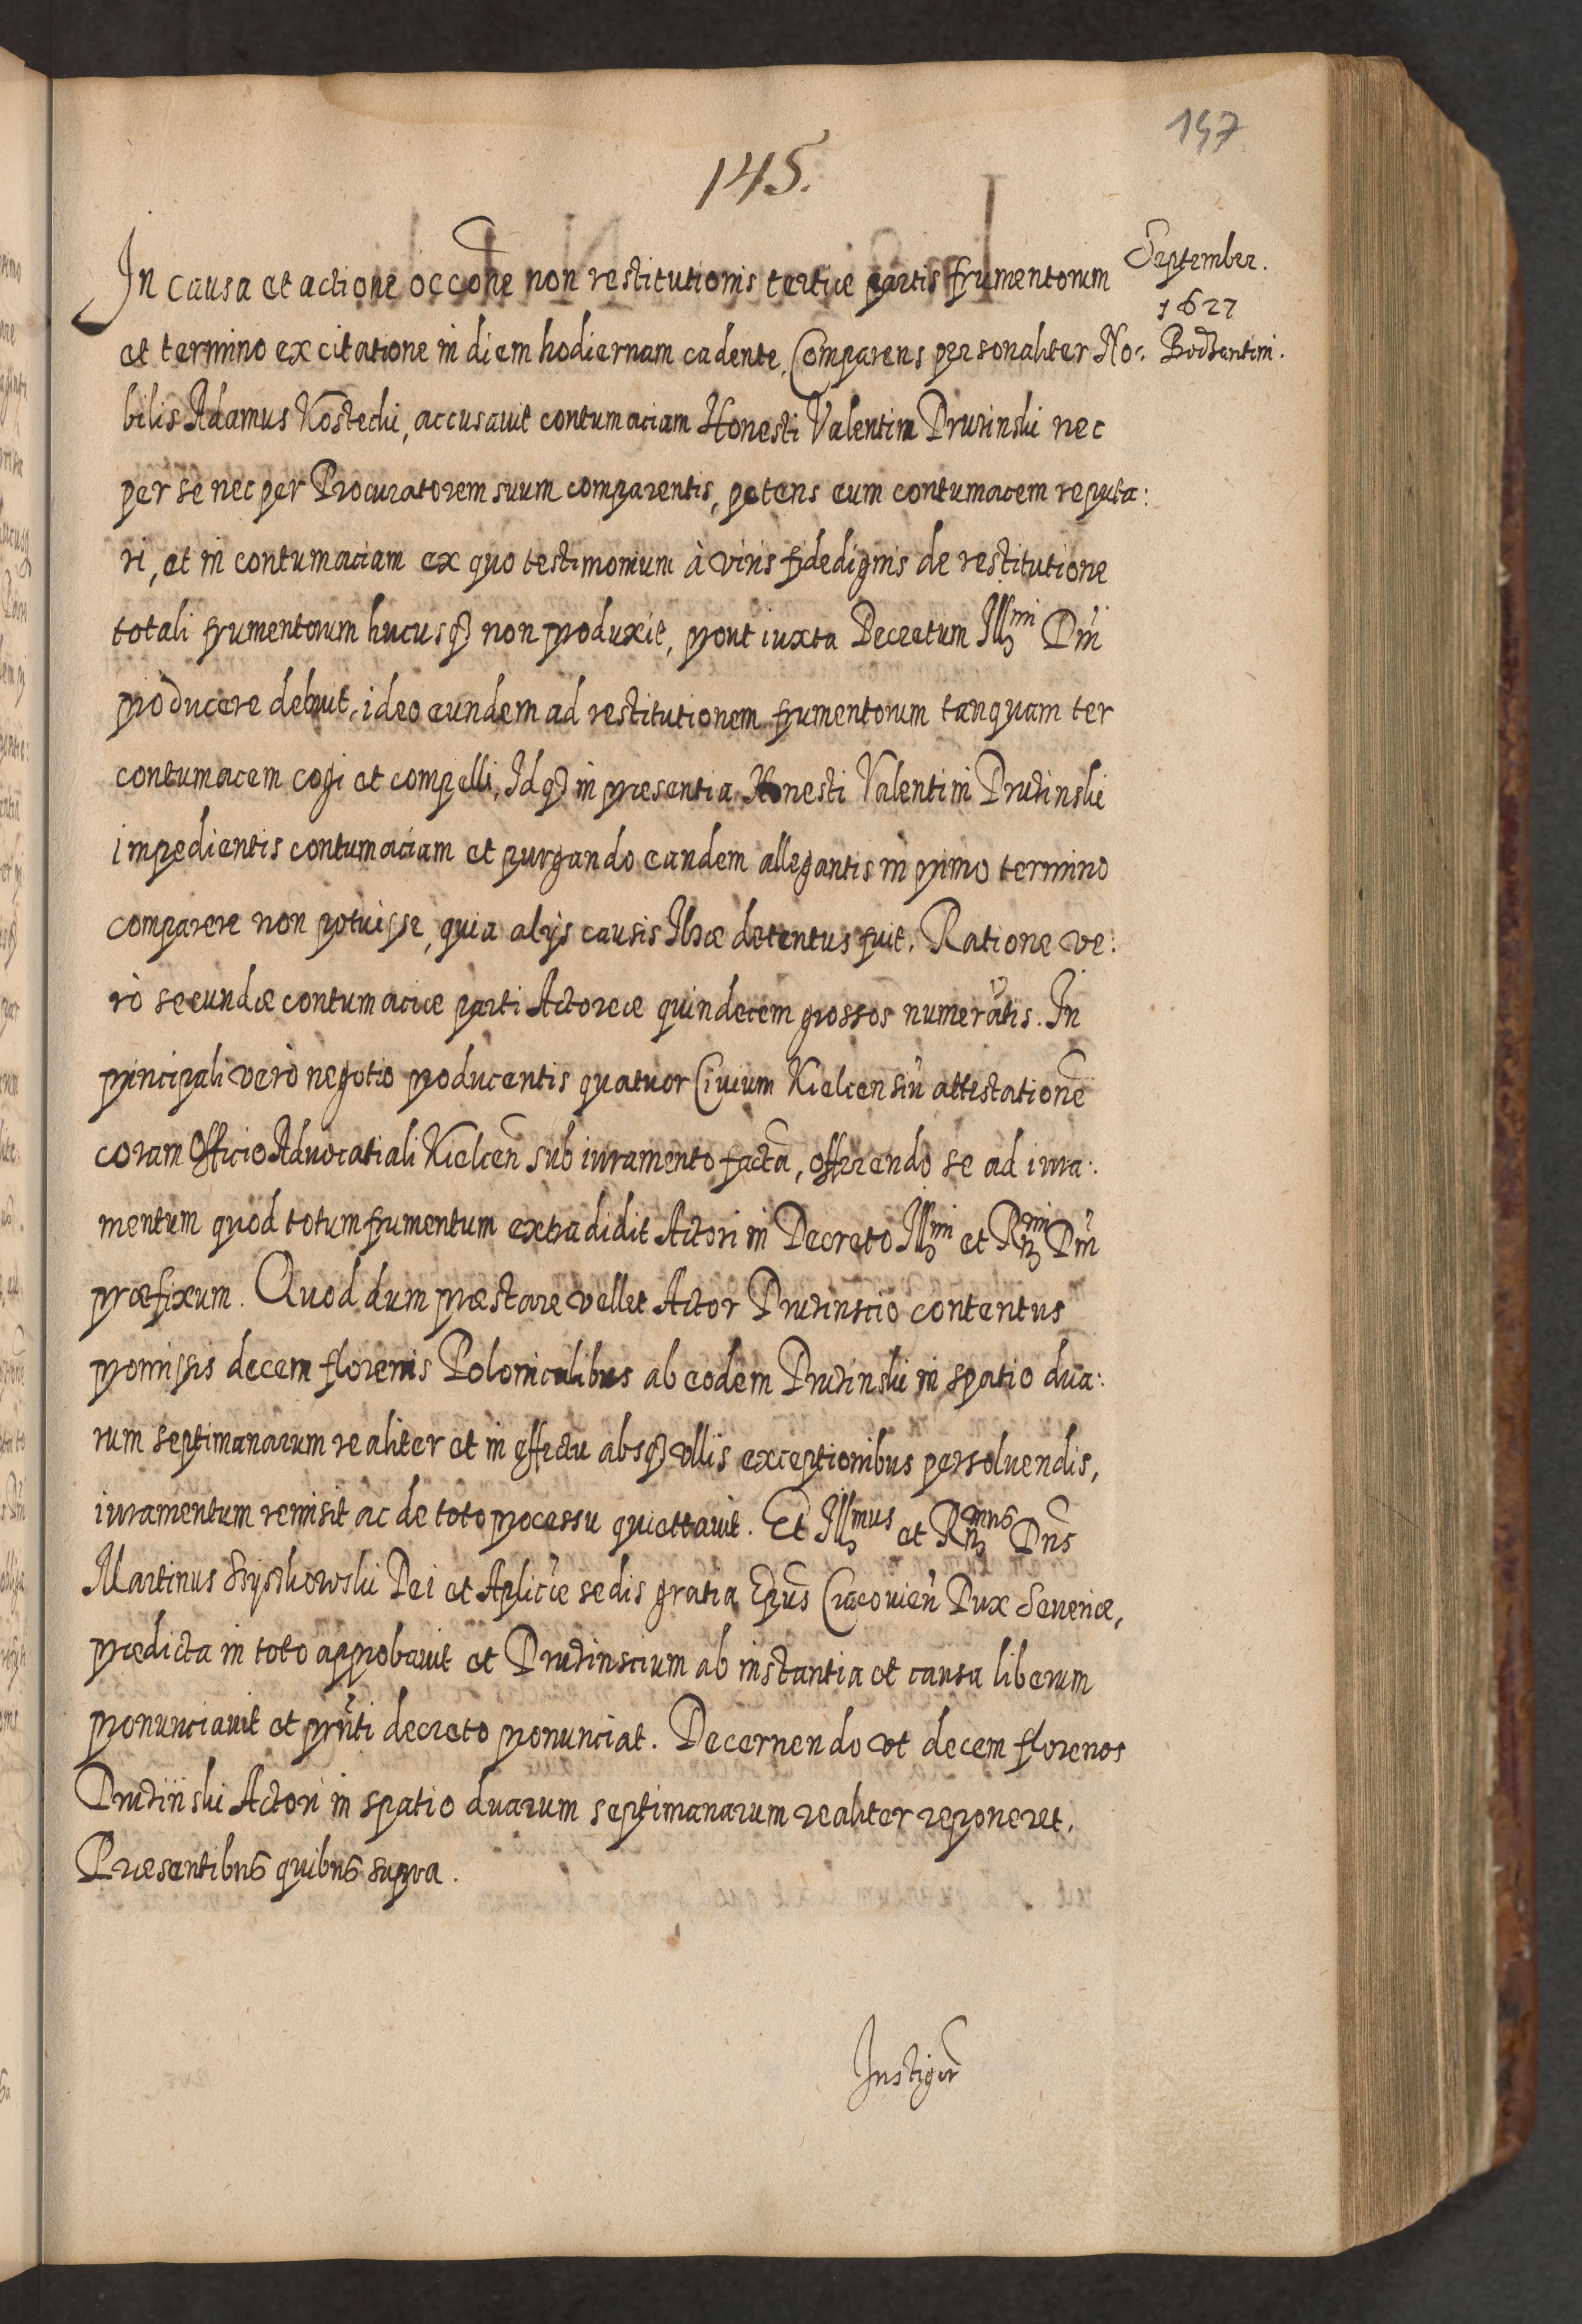 197
145.
September.
1627
Bodzantini.
In causa et actione occõne non restitutionis tertiæ partis frumentorum
et termino ex citatione in diem hodiernam cadente, Comparens personaliter No:
bilis Adamus Kostecki, accusavit contumaciam Honesti Valentini Drużinski nec
per se nec per Procuratorem suum comparentis, petens eum contumacem reputa:
ri, et in contumaciam ex quo testimonium à viris fidedignis de restitutione
totali frumentorum hucusq3 non produxit, prout iuxta Decretum Ill3mi Dni
producere debuit, ideo eundem ad restitutionem frumentorum tanquam ter
contumacem cogi et compelli, Idq3 in præsentia Honesti Valentini Drużinski
impedientis contumaciam et purgando eandem allegantis in primo termino
comparere non potuisse, quia alijs causis Ilżæ detentus fuit. Ratione ve:
rò secundæ contumaciæ parti Actoreæ quindecem grossos numerãtis. In
principali verò negotio producentis quatuor Civium Kielcensiũ attestationẽ
coram Officio Advocatiali Kielceñ sub iuramento factã, offerendo se ad iura:
mentum quod totum frumentum extradidit Actori in Decreto Ill3mi et R3mi Dni
præfixum. Quod dum præstare vellet Actor Drużinscio contentus
promissis decem florenis Polonicalibus ab eodem Drużinski in spatio dua:
rum septimanarum realiter et in effectu absq3 ullis exceptionibus persolvendis,
iuramentum remisit ac de toto processu quiettavit. Et Ill3mus et R3mus Dñs
Martinus Szyszkowski Dei et Aplicæ sedis gratia Epũs Cracovieñ Dux Severiæ,
prædicta in toto approbavit et Drużinscium ab instantia et causa liberum
pronunciavit et pñti decreto pronunciat. Decernendo ut decem florenos
Drużinski Actori in spatio duarum septimanarum realiter reponeret.
Præsentibus quibus supra.
Instigor̃